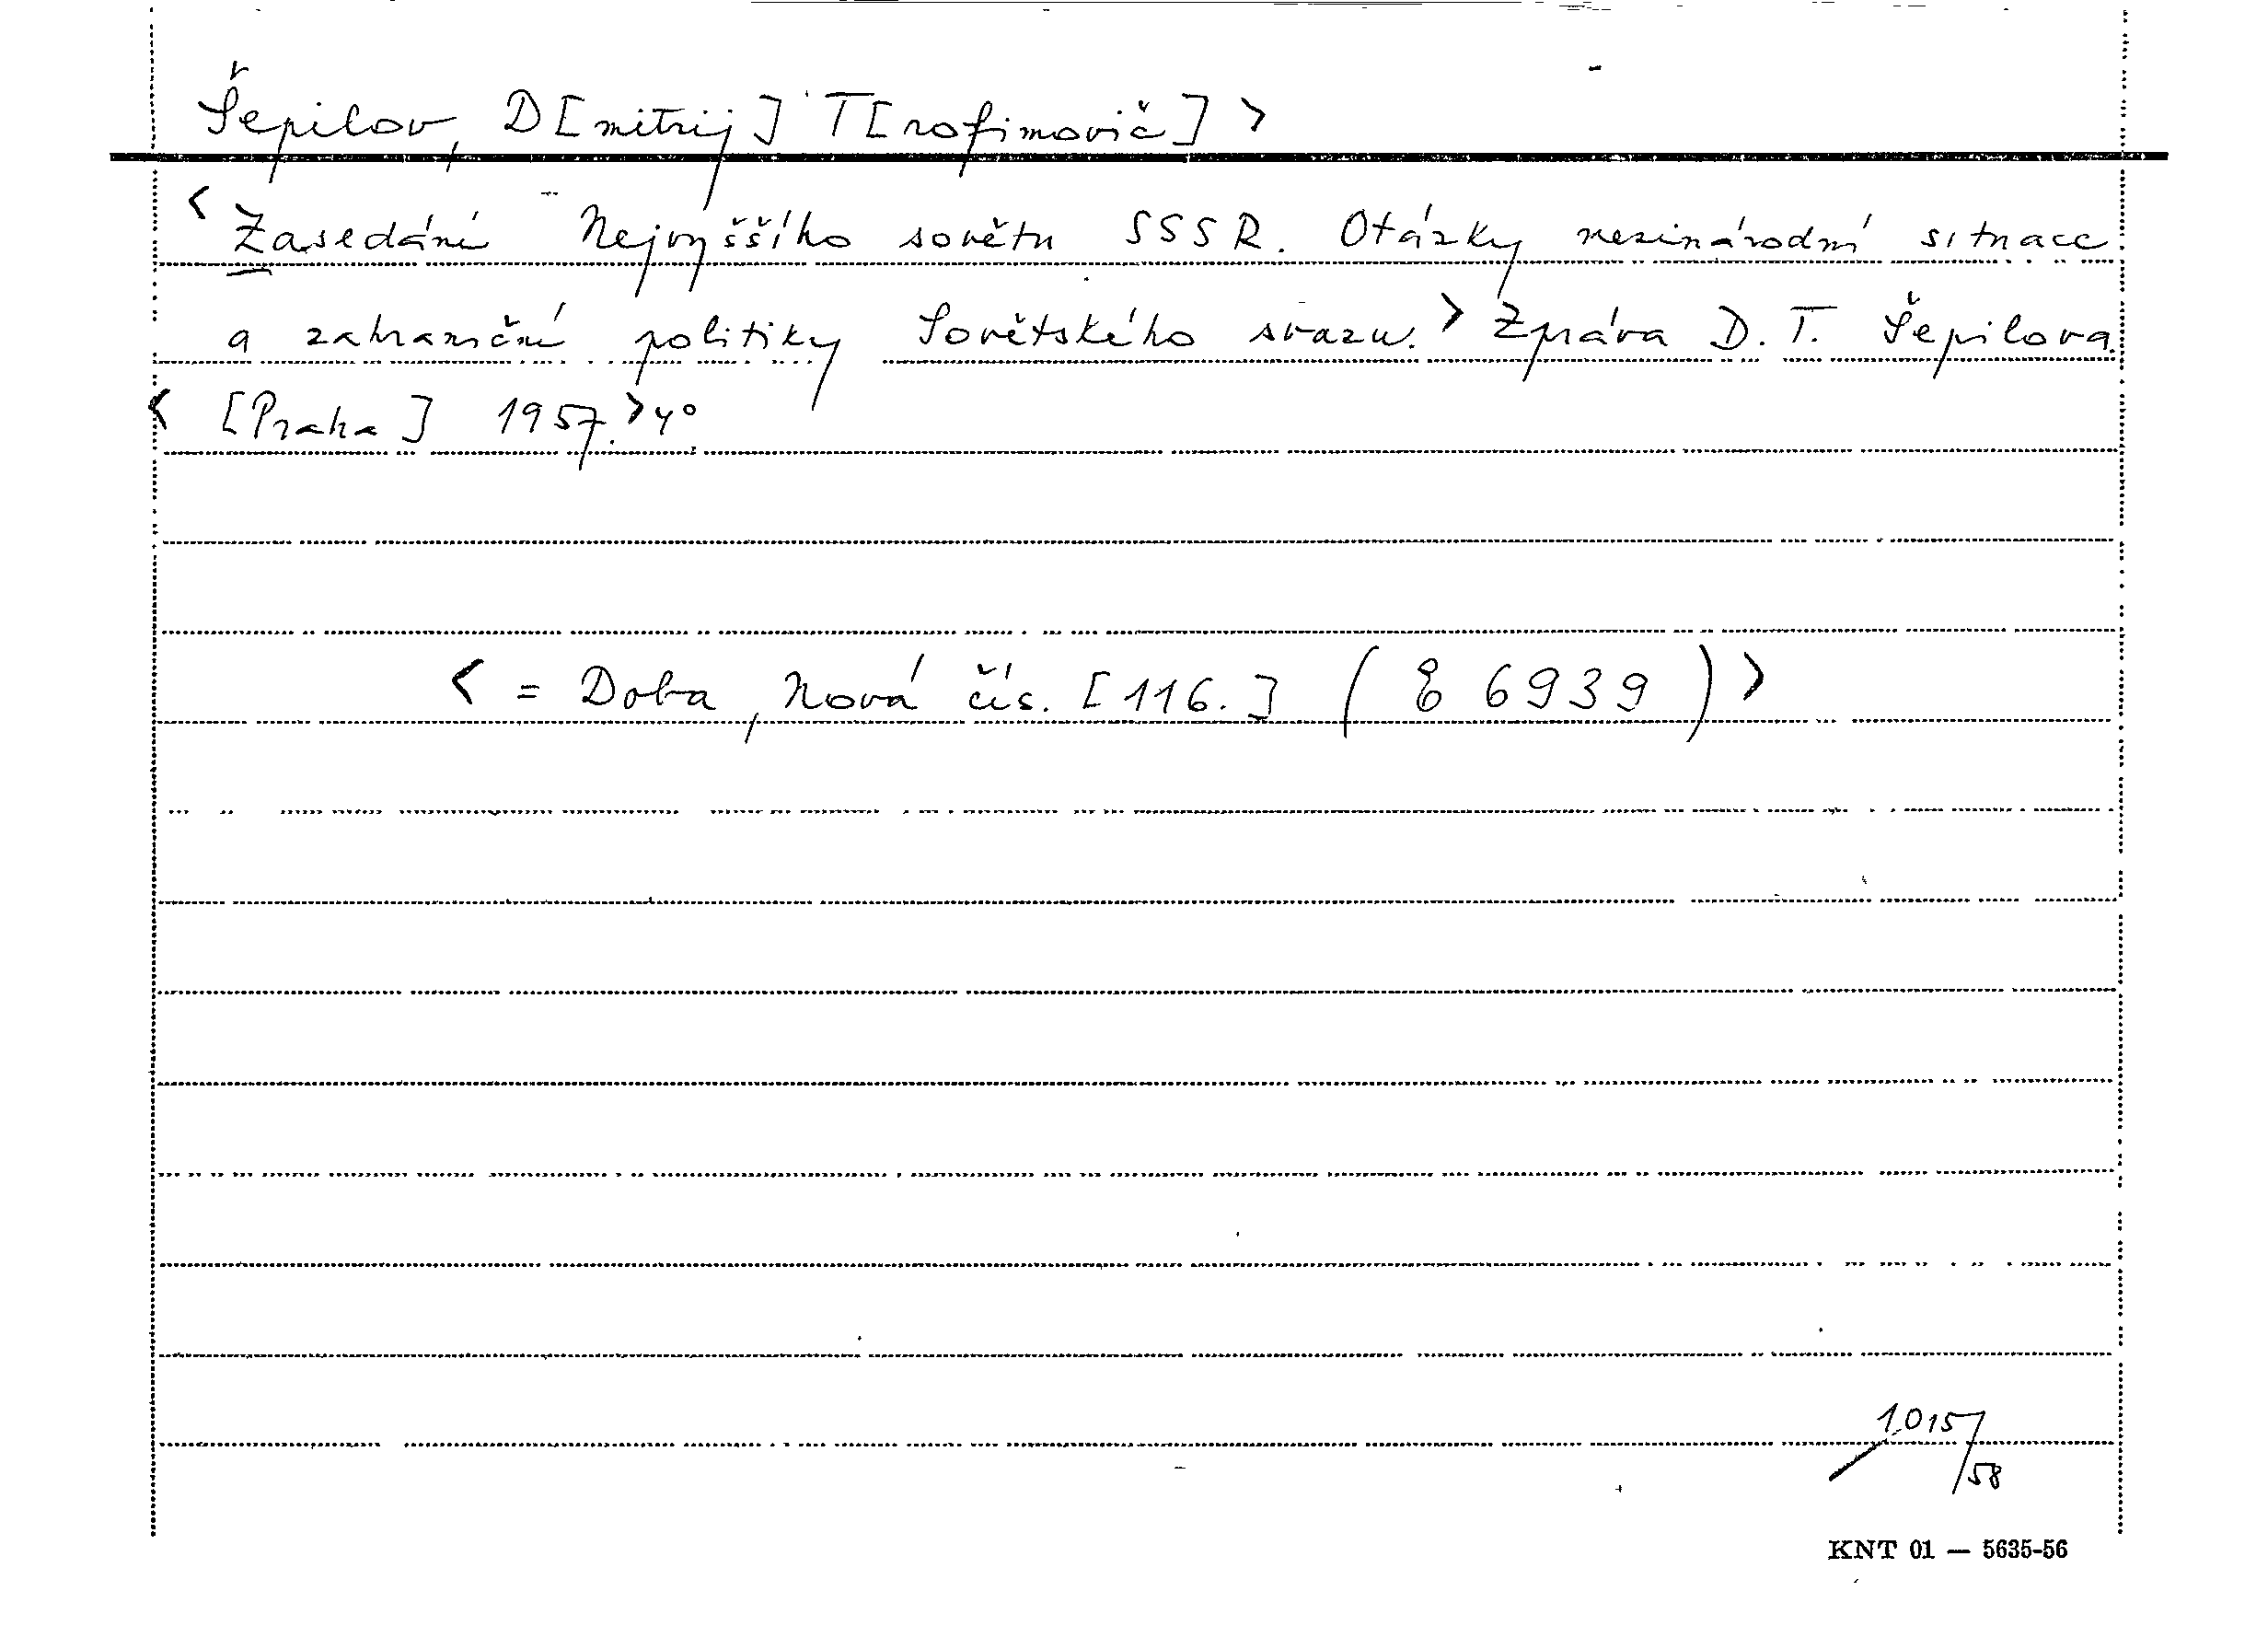 Šepilov, D[mitrij] T[rofimovič] >
< Zasedání Nejvyššího sovětu SSSR. Otázky mezinárodní situace
a zahraniční politiky Sovětského svazu. > Zpráva D. T. Šepilova.
< [Praha] 1957. > 4°.
< = Doba, Nová čís. [116.] ( E 6939 ) >
1015/58
KNT 01 — 5635-56